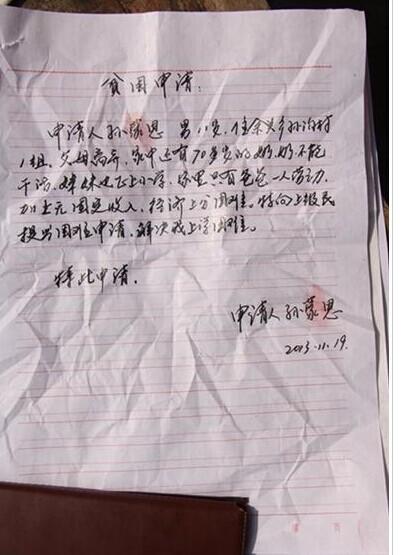 贫困申请:
申请人孙蒙恩 男11岁,住余义乡孙沟村
1组,父母离弃,家中还有70多岁的奶奶不能
干活,妹妹也正上小学,家里只有爸爸一人劳动,
加上无固定收入,经济上万困难。特向上级民
提出困难申请,解决我上学困难。
特此申请.
申请人孙蒙恩
2013.11.19.